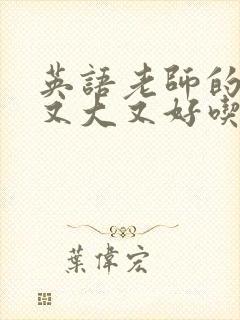 英語老師的
又大又好喫
葉偉宏